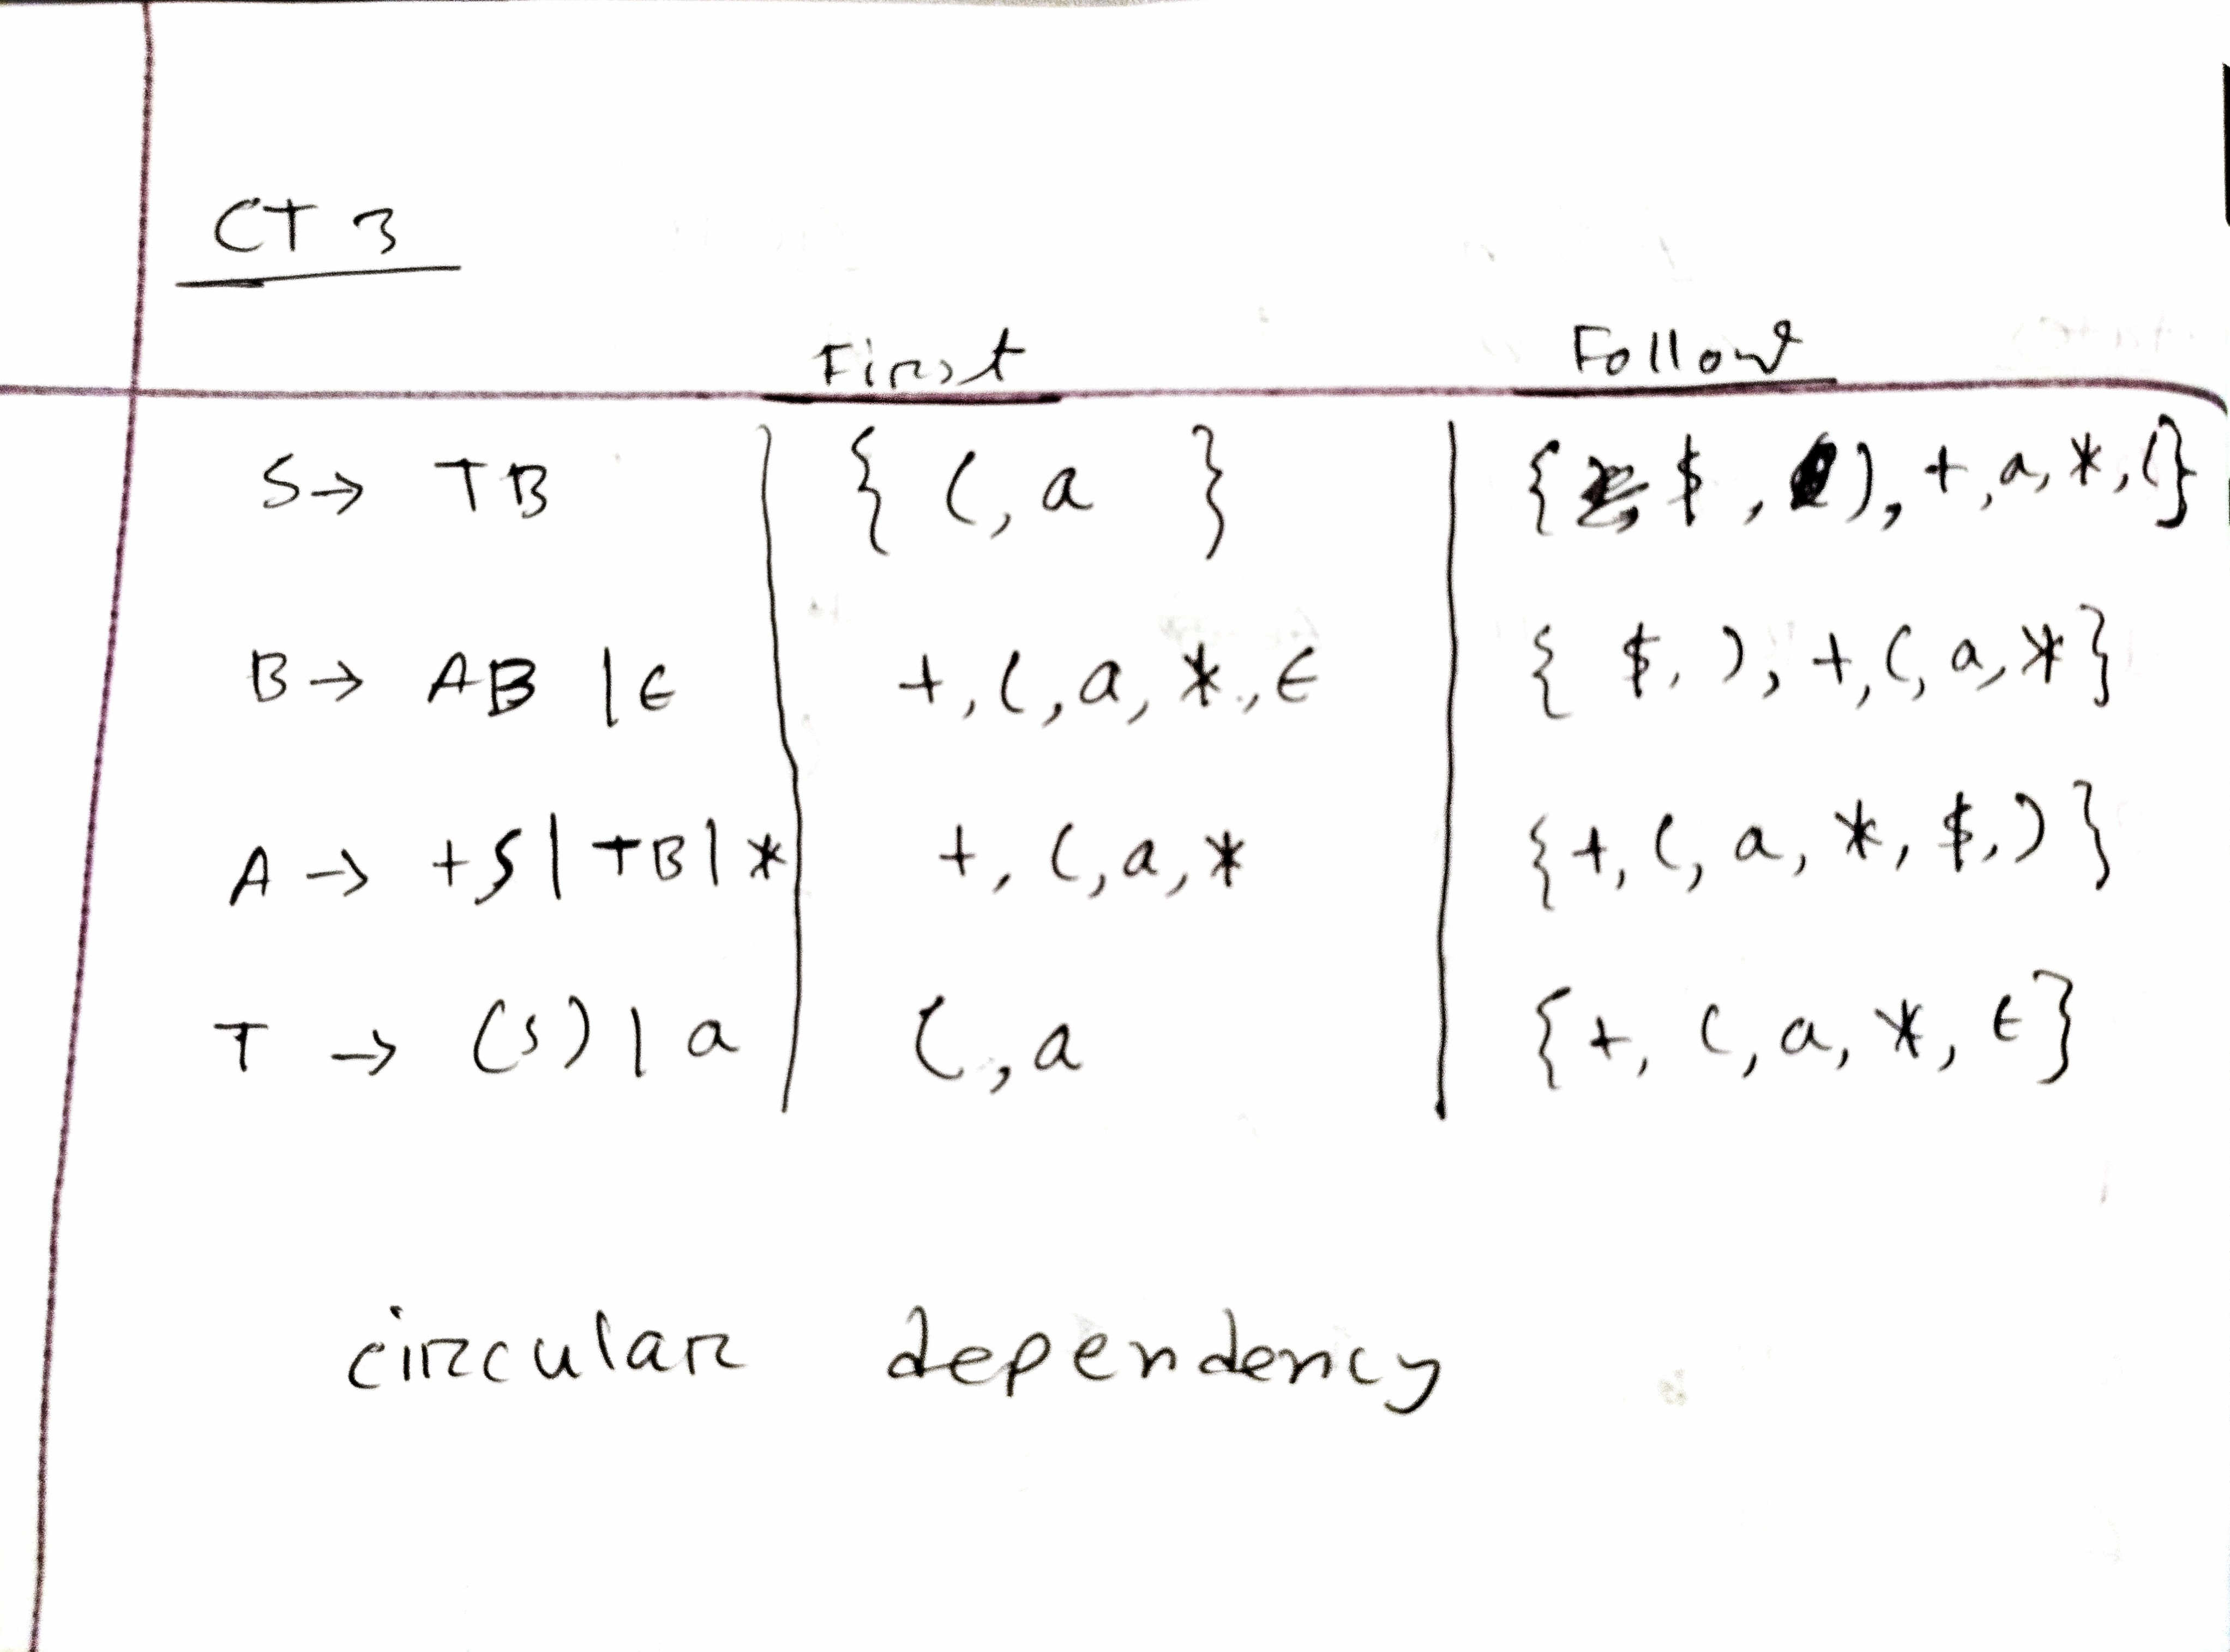 CT 3
First Follow
S → TB { (, a } { $, ), +, a, *, ( }
B → AB | ϵ +, (, a, *, ϵ { $, ), +, (, a, * }
A → +S | TB | * +, (, a, * { +, (, a, *, $, ) }
T → (S) | a (, a { +, (, a, *, ϵ }
circular dependency